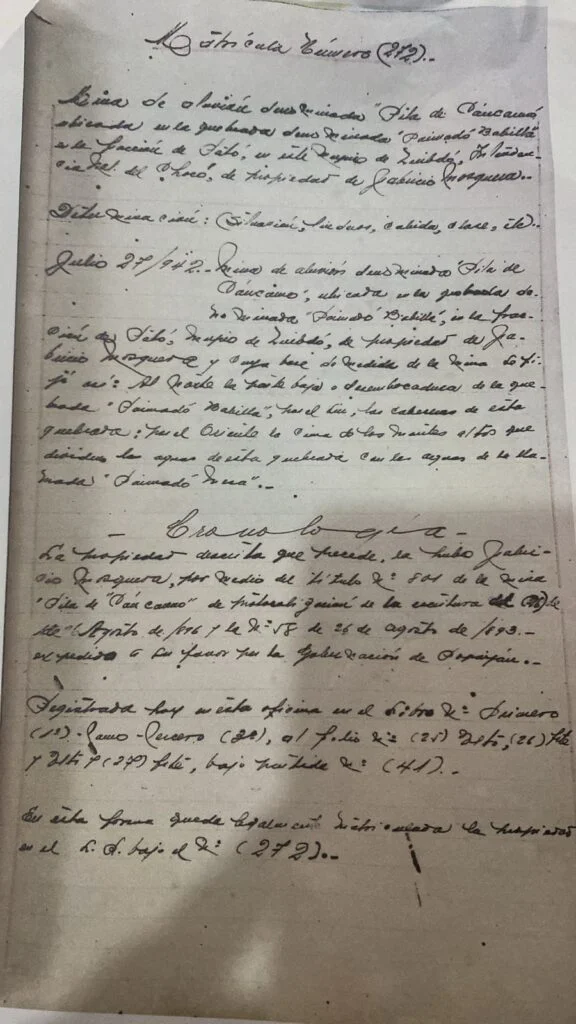 Matrícula Número (272)..
Mina de aluvión denominada "Pila de Páncamo
ubicada en la quebrada denominada "Paimadó Babillá"
en la fracción de Titó, en este Munpio de Quibdó, Intenden-
cia Nal. del Chocó, de propiedad de Gabino Mosquera..
Determinación: (Situación, linderos, cabida, clase, etc)..
Julio 27/942.. Mina de aluvión denominada "Pila de
Páncamo", ubicada en la quebrada de-
nominada "Paimadó Babillá, en la frac-
ción de Titó, Munpio de Quibdó, de propiedad de Ga-
Mosquera y cuya base de medida de la mina se fi-
jó así: Al Norte la parte baja o desembocadura de la que-
brada "Paimadó Babilla", por el Sur, las cabeceras de esta
quebrada; por el Oriente la cima de los montes altos que
dividen las aguas de esta quebrada con las aguas de la lla-
mada "Paimadó
- Cronología -
La propiedad descrita que precede, la hubo Gabi-
Mosquera, por medio del título Nº 801 de la mina
"Pila de "Páncamo" de protocolización de la escritura
Agosto de 1896 y la Nº 58 de 26 de agosto de 1893.-
expedido a su favor por la Gobernación de Popayán..
Registrada hoy en esta oficina en el Libro Nº Primero
(1º)-Tomo-Tercero (3º), al folio Nº (25) (26)
y (27) bajo partida Nº (41)..
En esta forma queda legalmente matriculada la propiedad
en el L. P. bajo el Nº (272)..